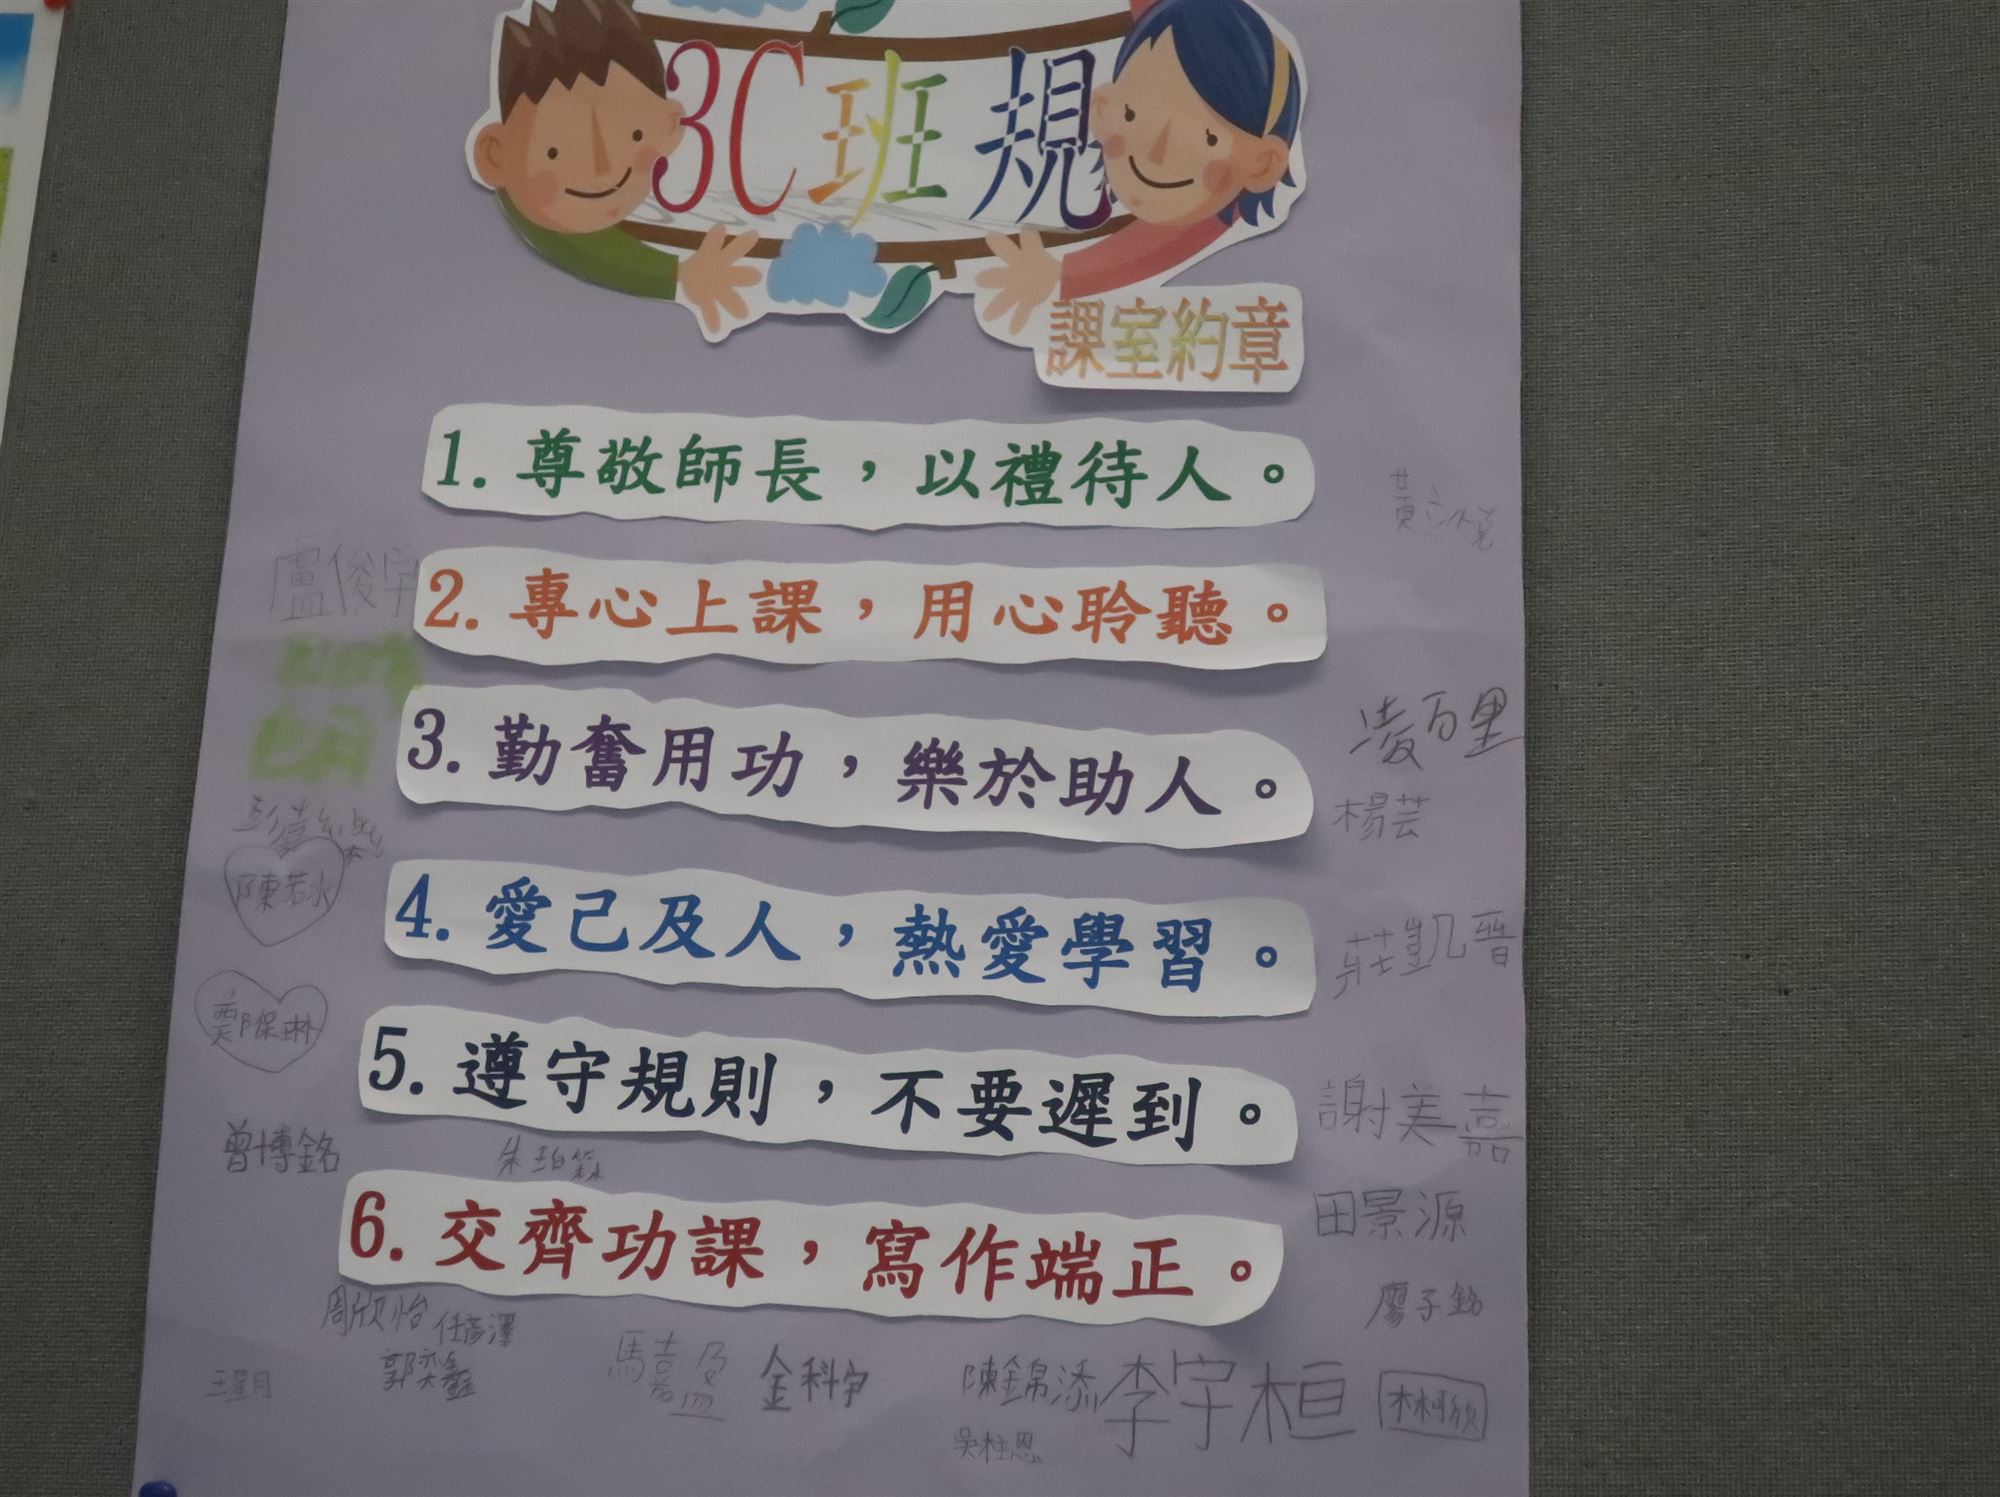 3C班規
課室約章
1. 尊敬師長，以禮待人。
2. 專心上課，用心聆聽。
盧俊宇
3. 勤奮用功，樂於助人。
凌百里
楊芸
陳若水
4. 愛己及人，熱愛學習。
莊凱晋
鄭保琳
5. 遵守規則，不要遲到。
謝美嘉
曾博銘
朱珀霖
6. 交齊功課，寫作端正。
田景源
廖子銘
周欣怡
任彥澤
郭奕鑫
王星月
馬嘉盈
金科宇
陳錦添
李宇桓
林珂欣
吳柱恩